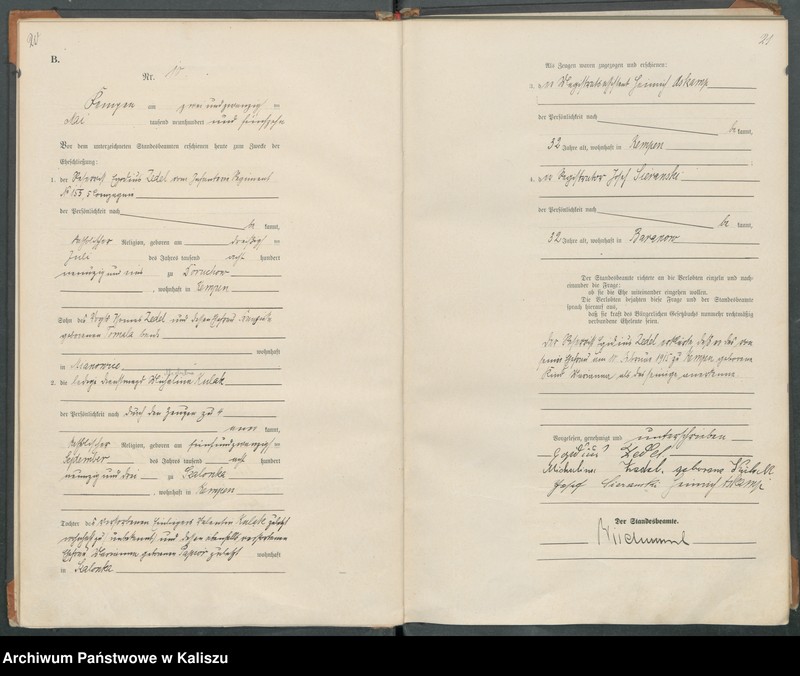 20
B.
Nr.
Kempen am zwei und zwanzig =
Mai tausend neunhundert und fünfzehn
Vor dem unterzeichneten Standesbeamten erschienen heute zum Zwecke der
Eheschließung:
1. der Reservist Egidius Zedel vom Infanterie Regiment
№ 155, 5 Compagnie
der Persönlichkeit nach
be kannt,
katholischer Religion, geboren am dreißig =
Juli des Jahres tausend acht hundert
neunzig und zu Doruchow
, wohnhaft in Kempen
Sohn des Zedel und dessen Ehefrau
geborenen beide
wohnhaft
in Mianowice
2. die ledige Dienstmagd Kulak
der Persönlichkeit nach durch den Zeugen zu 4
kannt,
katholischer Religion, geboren am fünfundzwanzig =
September des Jahres tausend acht hundert
neunzig und drei zu Galonke
, wohnhaft in Kempen
Tochter des verstorbenen Einliegers Valentin Kulak zuletzt
wohnhaft zu unbekannt, und dessen ebenfalls verstorbenen
Ehefrau Marianna geborene zuletzt wohnhaft
in Galonke
21
Als Zeugen waren zugezogen und erschienen:
3. der Magistratsassistent Heinrich Askamp
der Persönlichkeit nach
be kannt,
32 Jahre alt, wohnhaft in Kempen
4. der Registrator Josef Sieranski
der Persönlichkeit nach
be kannt,
32 Jahre alt, wohnhaft in Baranow
Der Standesbeamte richtete an die Verlobten einzeln und nach-
einander die Frage:
ob sie die Ehe miteinander eingehen wollen.
Die Verlobten bejahten diese Frage und der Standesbeamte
sprach hierauf aus,
daß sie kraft des Bürgerlichen Gesetzbuchs nunmehr rechtmäßig
verbundene Eheleute seien.
Der Reservist Egidius Zedel erklärte, daß er das von
seiner Ehefrau am 11. Februar 1915 zu Kempen geborene
Kind Marianna als das seinige anerkenne.
Vorgelesen, genehmigt und unterschrieben
Egidius Zedel
Michalina Zedel geborene Kulak
Josef Sieranski Heinrich Askamp
Der Standesbeamte.
Archiwum Państwowe w Kaliszu